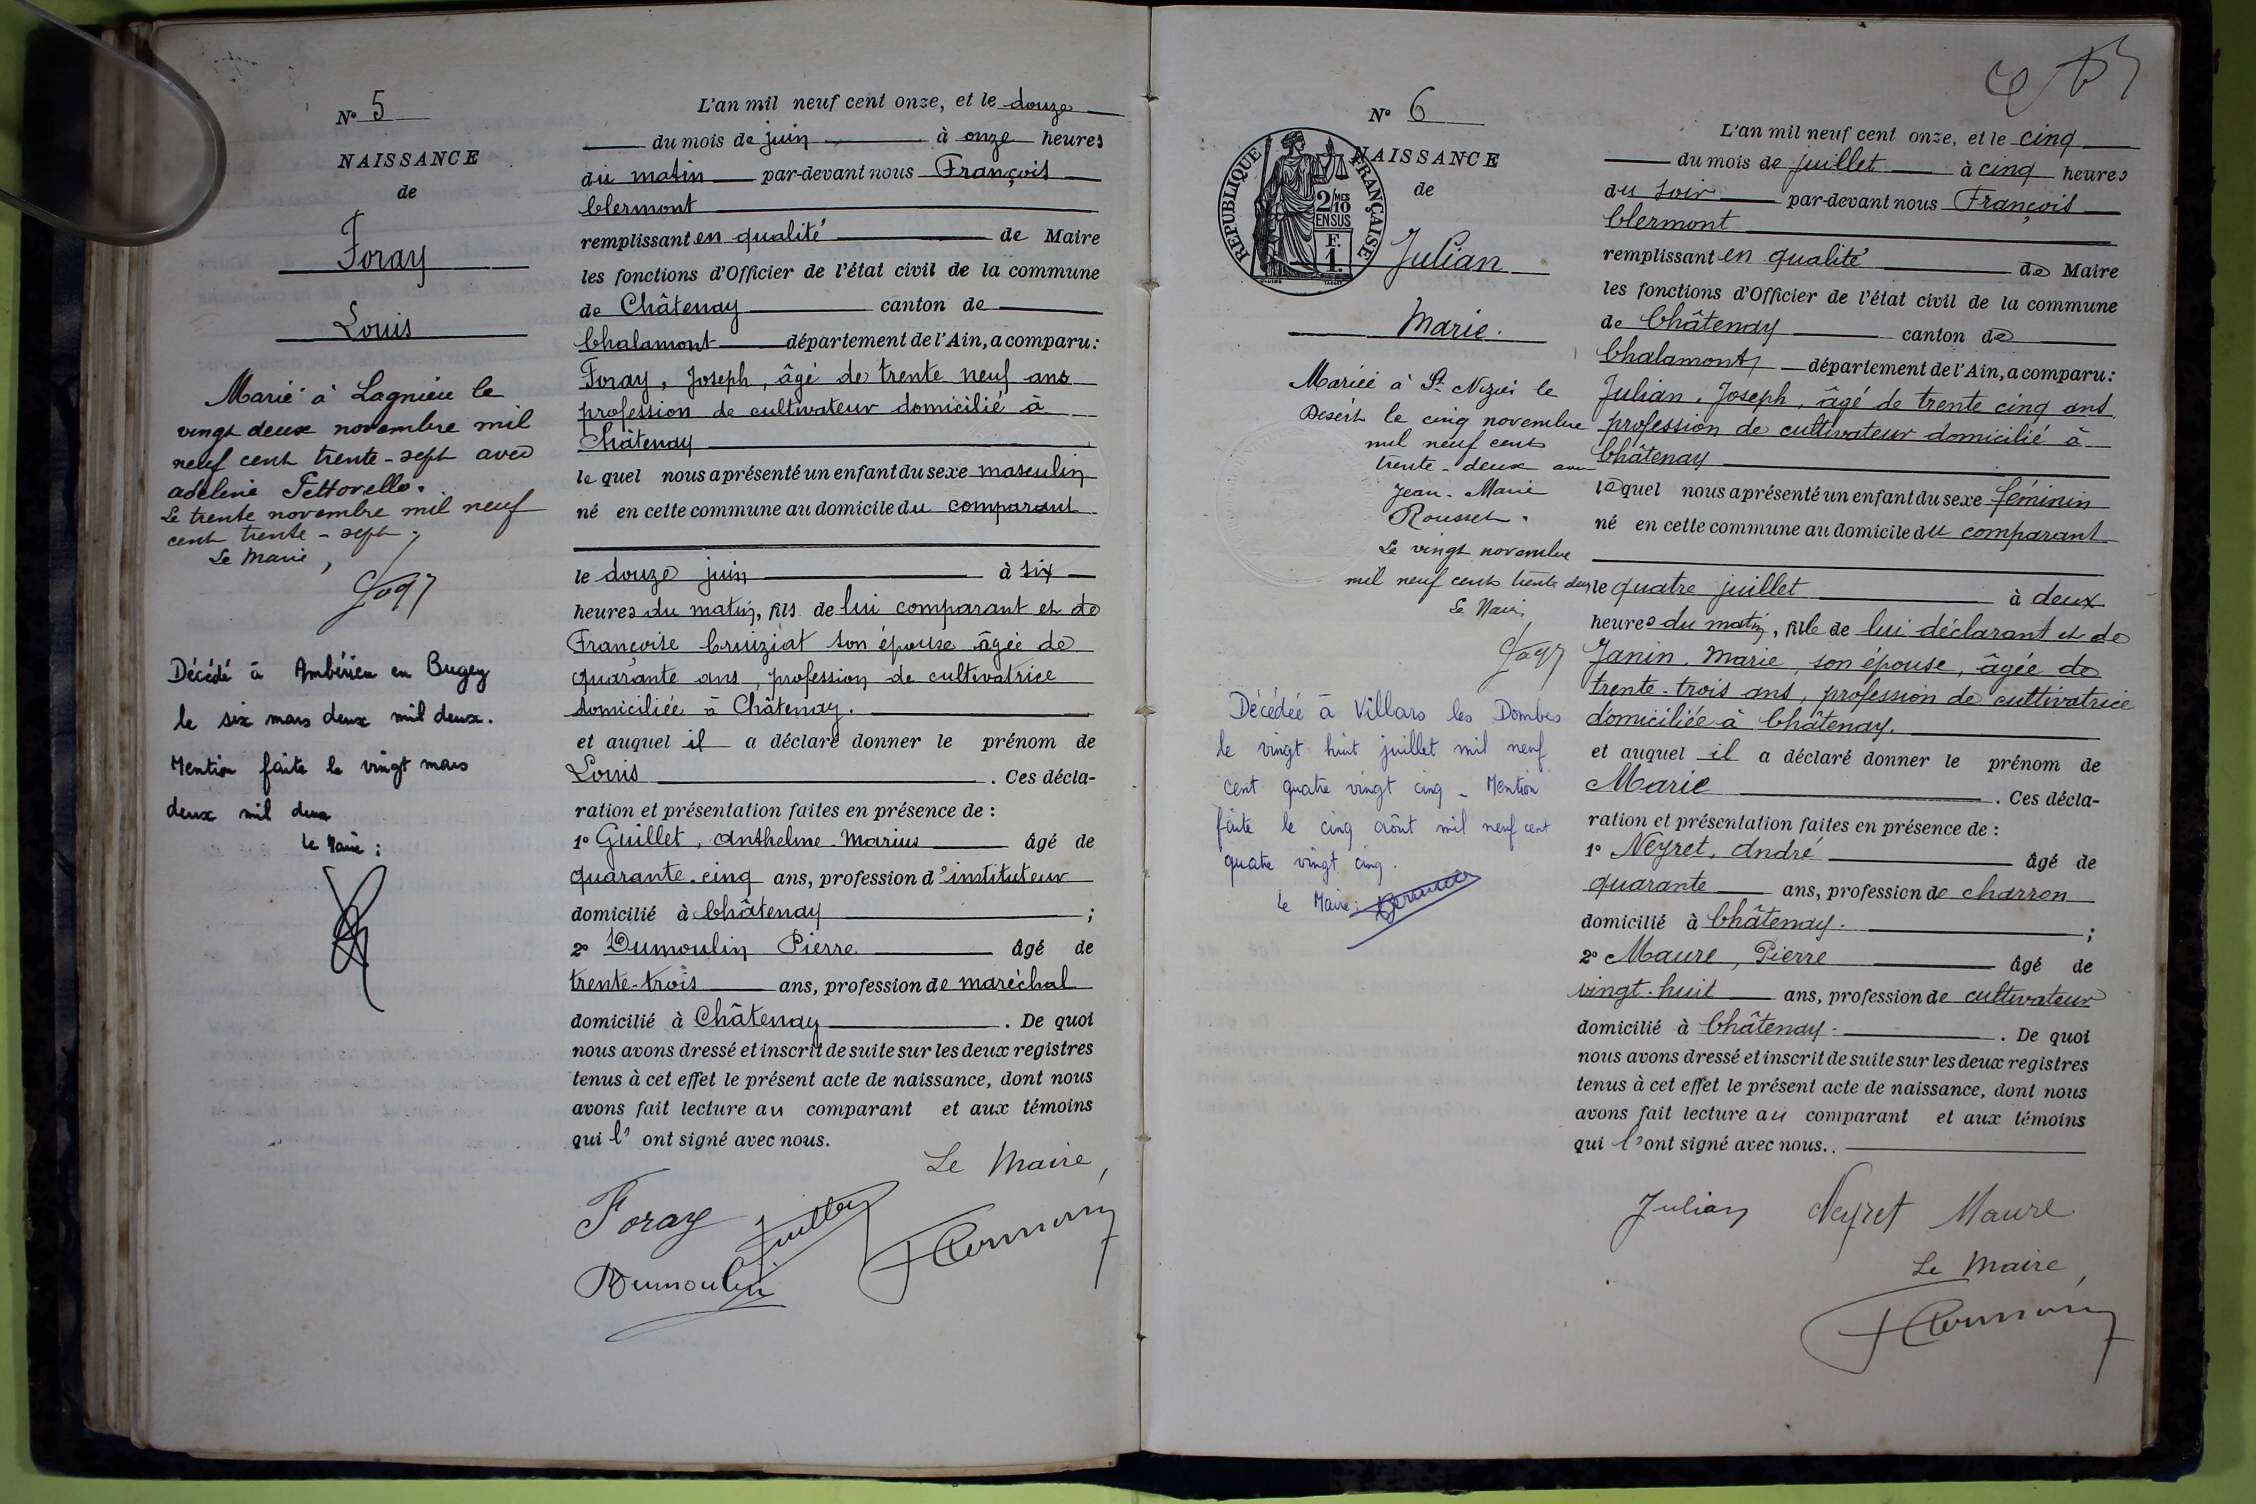 N° 5
NAISSANCE
de
Foray
Louis
Marié à Lagnieu le
vingt deux novembre mil
neuf cent trente-sept avec
adeline Tettorello.
Le trente novembre mil neuf
cent trente-sept.
Le Maire,
Décédé à Ambérieu en Bugey
le six mars deux mil deux.
Mention faite le vingt mars
deux mil deux
Le Maire :
L'an mil neuf cent onze, et le douze
du mois de juin à onze heures
du matin par-devant nous François
Clermont
remplissant en qualité de Maire
les fonctions d'Officier de l'état civil de la commune
de Châtenay canton de
Chalamont département de l'Ain, a comparu :
Foray, Joseph, âgé de trente neuf ans
profession de cultivateur domicilié à
Châtenay
le quel nous a présenté un enfant du sexe masculin
né en cette commune au domicile du comparant
le douze juin à six
heures du matin, fils de lui comparant et de
Françoise Cruiziat son épouse âgée de
quarante ans, profession de cultivatrice
domiciliée à Châtenay.
et auquel il a déclaré donner le prénom de
Louis . Ces décla-
ration et présentation faites en présence de :
1° Guillet, Anthelme-Marius âgé de
quarante-cinq ans, profession d'instituteur
domicilié à Châtenay ;
2° Dumoulin Pierre âgé de
trente-trois ans, profession de maréchal
domicilié à Châtenay . De quoi
nous avons dressé et inscrit de suite sur les deux registres
tenus à cet effet le présent acte de naissance, dont nous
avons fait lecture au comparant et aux témoins
qui l'ont signé avec nous.
Le Maire,
Foray Guillet
Dumoulin FClermont
N° 6
NAISSANCE
de
RÉPUBLIQUE FRANÇAISE
2/10 MES
EN SUS
F.
1.
Julian
Marie.
Mariée à St Nizier le
Désert le cinq novembre
mil neuf cent
trente-deux avec
Jean-Marie
Rousset.
Le vingt novembre
mil neuf cent trente deux
Le Maire,
Décédée à Villars les Dombes
le vingt huit juillet mil neuf
cent quatre vingt cinq - Mention
faite le cinq août mil neuf cent
quatre vingt cinq.
Le Maire :
L'an mil neuf cent onze, et le cinq
du mois de juillet à cinq heures
du soir par-devant nous François
Clermont
remplissant en qualité de Maire
les fonctions d'Officier de l'état civil de la commune
de Châtenay canton de
Chalamont département de l'Ain, a comparu :
Julian, Joseph, âgé de trente cinq ans
profession de cultivateur domicilié à
Châtenay
le quel nous a présenté un enfant du sexe féminin
né en cette commune au domicile du comparant
le quatre juillet à deux
heures du matin, fille de lui déclarant et de
Janin, Marie, son épouse, âgée de
trente-trois ans, profession de cultivatrice
domiciliée à Châtenay.
et auquel il a déclaré donner le prénom de
Marie . Ces décla-
ration et présentation faites en présence de :
1° Neyret, André âgé de
quarante ans, profession de charron
domicilié à Châtenay. ;
2° Maure, Pierre âgé de
vingt-huit ans, profession de cultivateur
domicilié à Châtenay. . De quoi
nous avons dressé et inscrit de suite sur les deux registres
tenus à cet effet le présent acte de naissance, dont nous
avons fait lecture au comparant et aux témoins
qui l'ont signé avec nous.
Julian Neyret Maure
Le Maire,
FClermont